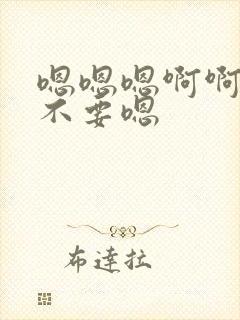 嗯嗯嗯啊啊
不要嗯
布達拉